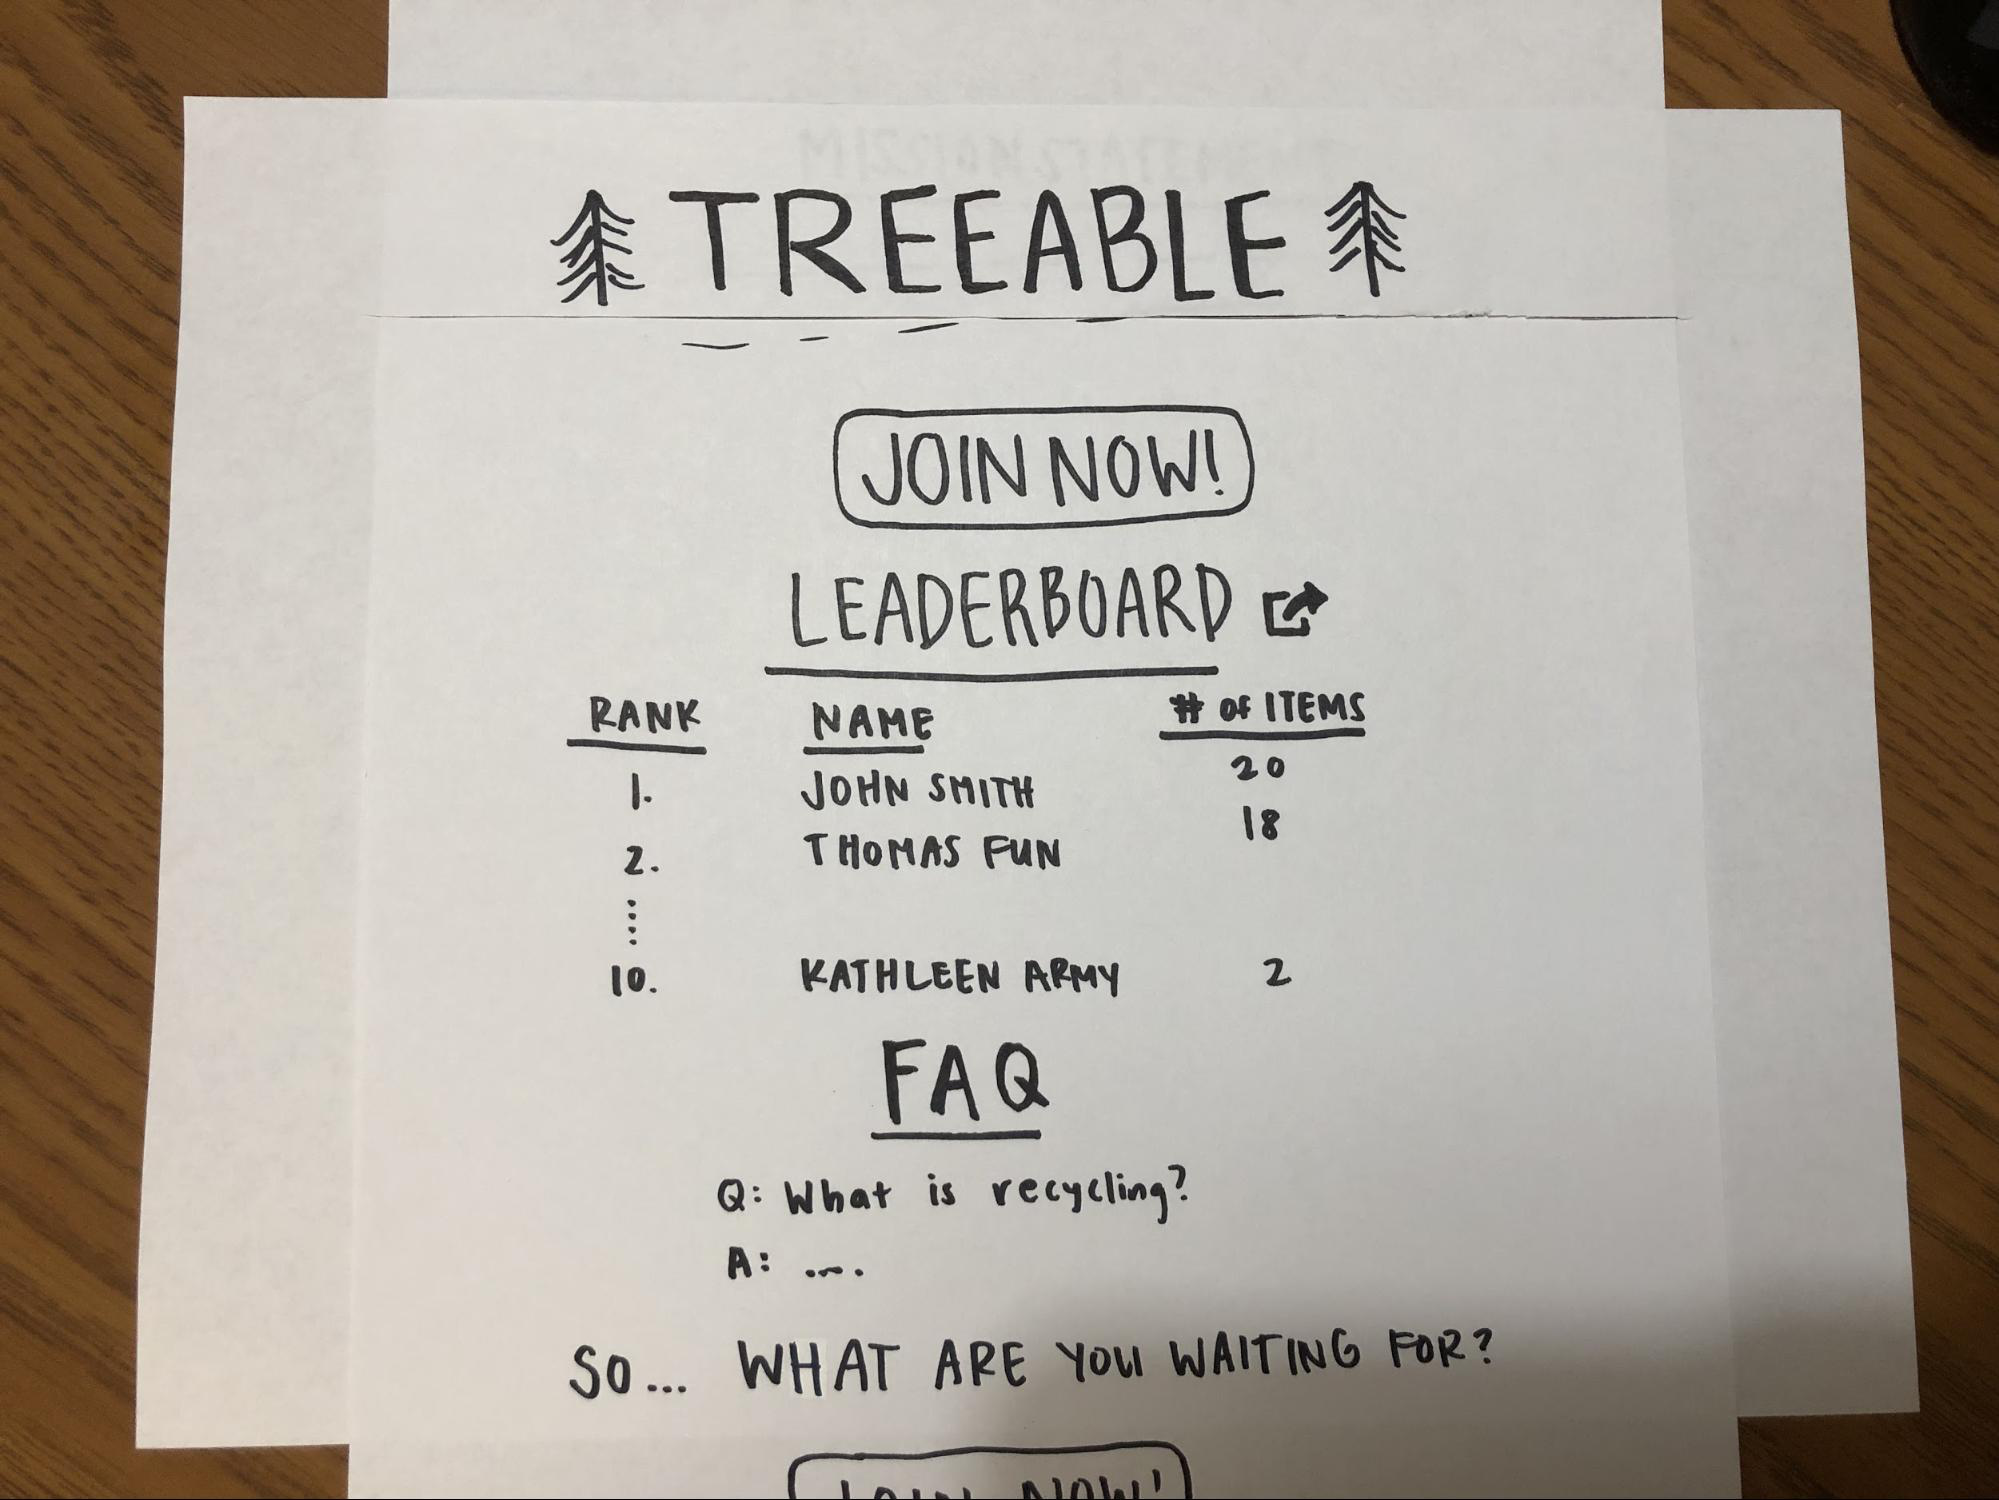 TREEABLE
JOIN NOW!
LEADERBOARD
RANK NAME # of ITEMS
1. JOHN SMITH 20
2. THOMAS FUN 18
.....
10. KATHLEEN ARMY 2
FAQ
Q: What is recycling?
A: ....
SO... WHAT ARE YOU WAITING FOR?
JOIN NOW!